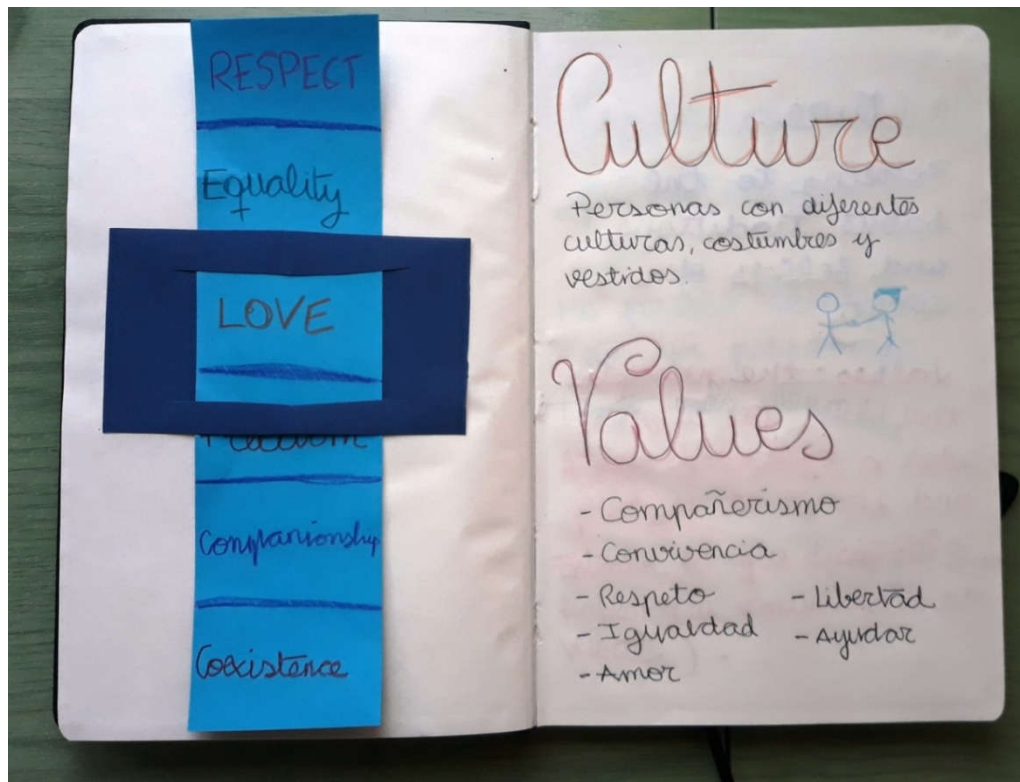 RESPECT
Equality
LOVE
Freedom
Companionship
Coexistence
Culture
Personas con diferentes
culturas, costumbres y
vestidos.
Values
- Compañerismo
- Convivencia
- Respeto
- Libertad
- Igualdad
- Ayudar
- Amor